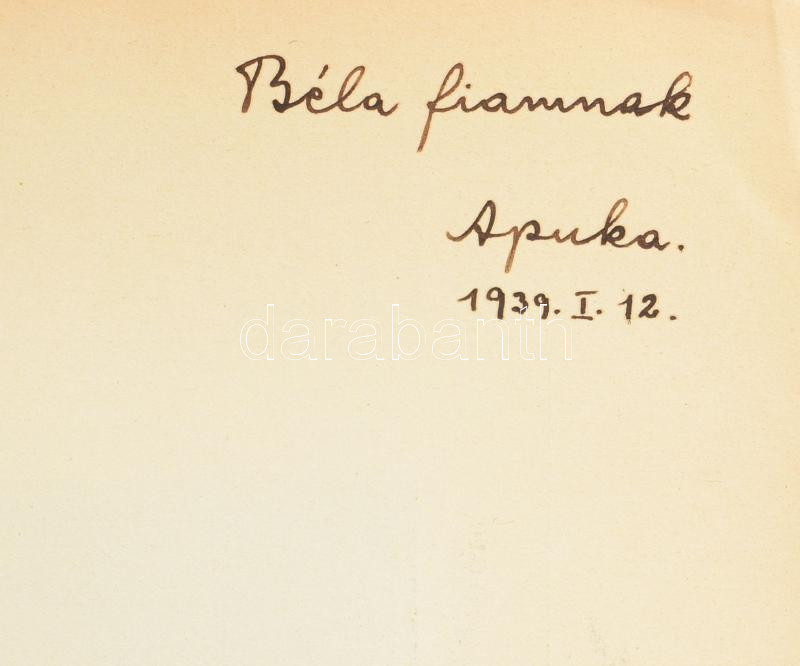 Béla fiamnak
Apuka.
1939. I. 12.
darabanth